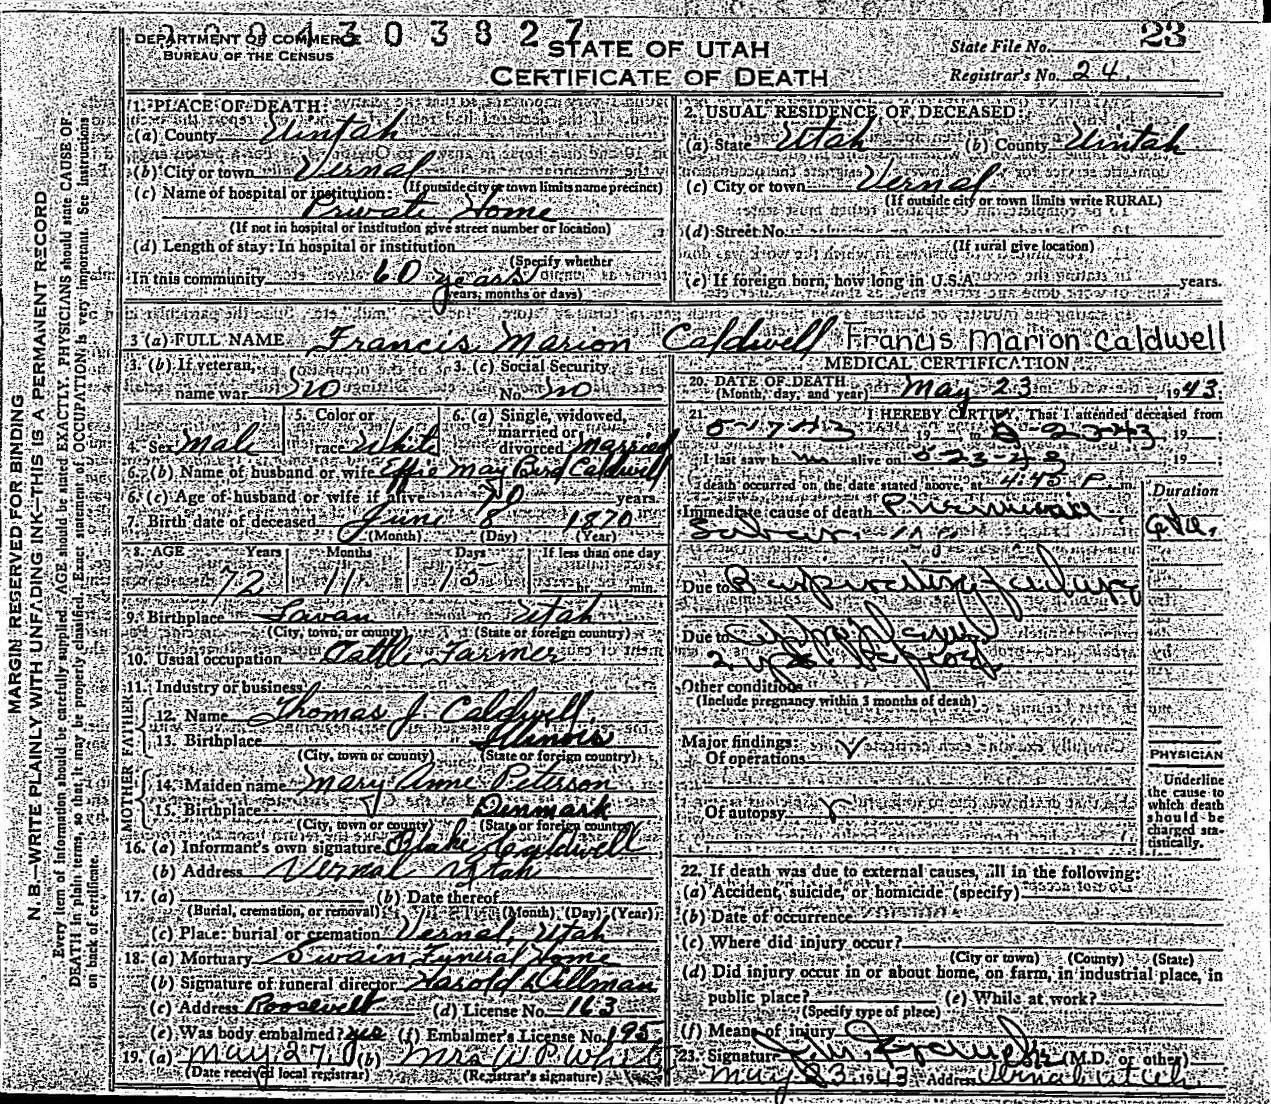 2 0 0 4 3 0 3 8 2 7
DEPARTMENT OF COMMERCE
BUREAU OF THE CENSUS
STATE OF UTAH
CERTIFICATE OF DEATH
State File No. 23
Registrar's No. 24.
MARGIN RESERVED FOR BINDING
N. B.—WRITE PLAINLY WITH UNFADING INK—THIS IS A PERMANENT RECORD
Every item of information should be carefully supplied. AGE should be stated EXACTLY. PHYSICIANS should state CAUSE OF
DEATH in plain terms, so that it may be properly classified. Exact statement of OCCUPATION is very important. See Instructions
on back of certificate.
1. PLACE OF DEATH:
(a) County Uintah
(b) City or town Vernal
(If outside city or town limits name precinct)
(c) Name of hospital or institution:
Private Home
(If not in hospital or institution give street number or location)
(d) Length of stay: In hospital or institution
(Specify whether
In this community 60 years
years, months or days)
2. USUAL RESIDENCE OF DECEASED:
(a) State Utah (b) County Uintah
(c) City or town Vernal
(If outside city or town limits write RURAL)
(d) Street No.
(If rural give location)
(e) If foreign born, how long in U.S.A. years.
3 (a) FULL NAME Francis Marion Caldwell Francis Marion Caldwell
3. (b) If veteran, name war no
3. (c) Social Security No. no
4. Sex Male
5. Color or race White
6. (a) Single, widowed, married or divorced married
6. (b) Name of husband or wife Effie May Bird Caldwell
6. (c) Age of husband or wife if alive 70 years.
7. Birth date of deceased June 8 1870
(Month) (Day) (Year)
8. AGE Years Months Days If less than one day
72 11 15 hr. min.
9. Birthplace Levan Utah
(City, town, or county) (State or foreign country)
10. Usual occupation Cattle Farmer
11. Industry or business
FATHER
12. Name Thomas J. Caldwell
13. Birthplace Illinois
(City, town or county) (State or foreign country)
MOTHER
14. Maiden name Mary Anne Peterson
15. Birthplace Denmark
(City, town or county) (State or foreign country)
16. (a) Informant's own signature Blake Caldwell
(b) Address Vernal Utah
17. (a) (b) Date thereof
(Burial, cremation, or removal) (Month) (Day) (Year)
(c) Place: burial or cremation Vernal, Utah
18. (a) Mortuary Swain Funeral Home
(b) Signature of funeral director Harold Dillman
(c) Address Roosevelt (d) License No. 163
(e) Was body embalmed? yes (f) Embalmer's License No. 195
19. (a) May 27, (b) Mrs W P White
(Date received local registrar) (Registrar's signature)
MEDICAL CERTIFICATION
20. DATE OF DEATH May 23 1943.
(Month, day, and year)
21. I HEREBY CERTIFY, That I attended deceased from
5-17-43 19 to 5-23-43, 19
I last saw h im alive on 5-23-43 19
death occurred on the date stated above, at 4:45 P. m.
Duration
Immediate cause of death
Due to Respiratory
Due to
Other conditions
(Include pregnancy within 3 months of death)
Major findings:
Of operations
Of autopsy
PHYSICIAN
Underline
the cause to
which death
should be
charged sta-
tistically.
22. If death was due to external causes, fill in the following:
(a) Accident, suicide, or homicide (specify)
(b) Date of occurrence
(c) Where did injury occur?
(City or town) (County) (State)
(d) Did injury occur in or about home, on farm, in industrial place, in
public place? (e) While at work?
(Specify type of place)
(f) Means of injury
23. Signature (M.D. or other)
May 23 1943 Address Vernal Utah